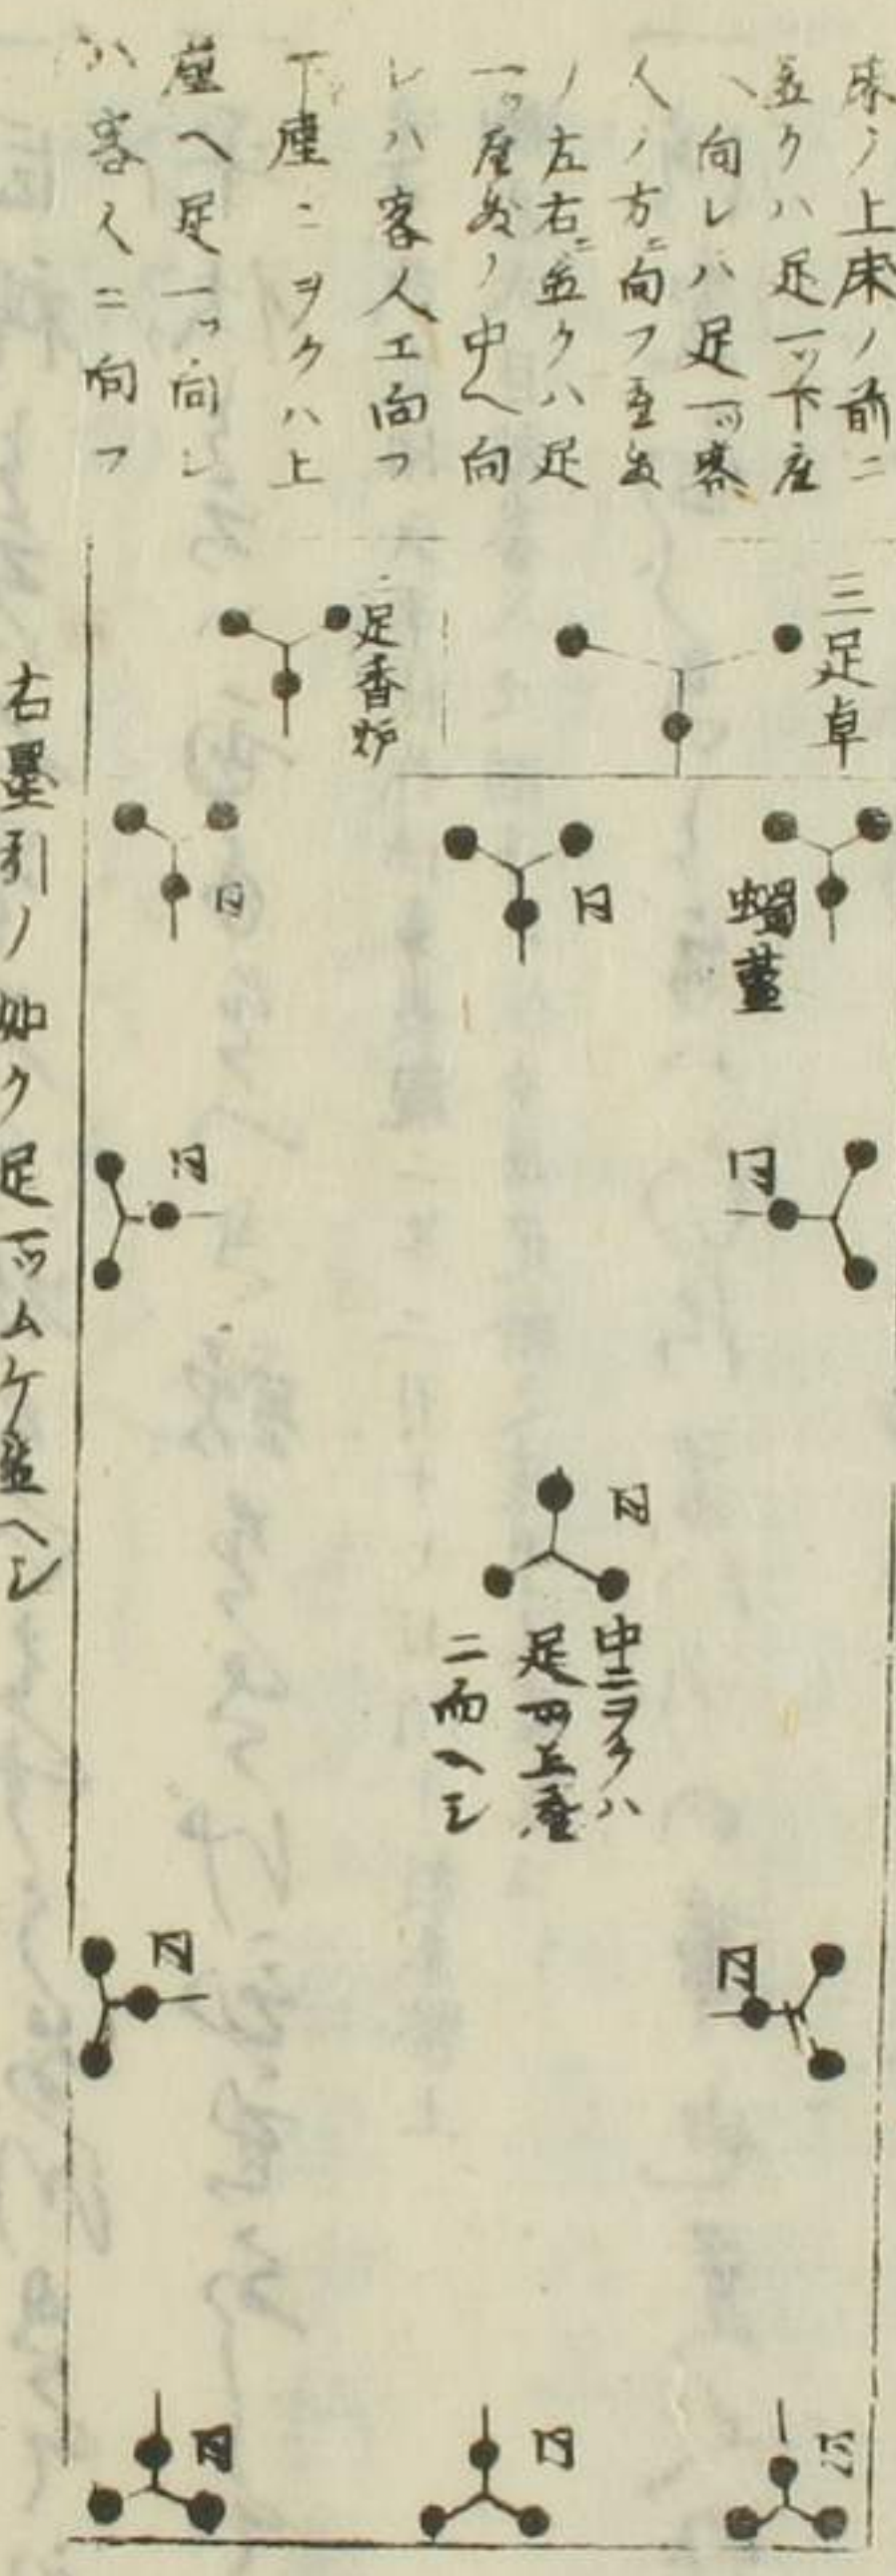 床ノ上床ノ前ニ
置クハ足一ツ下座
ヘ向レハ足一ツ客
人ノ方ニ向フ座敷
ノ左右ニ置クハ足
一ツ座敷ノ中ヘ向
レハ客人エ向フ
下座ニヲクハ上
座ヘ足一ツ向レ
ハ客人ニ向フ
三足卓
三足香炉
蝋蓋
同
同
同
同
同
中ニヲクハ
足一ツ上座
ニ向ヘシ
同
同
同
同
同
右墨引ノ如ク足一ツムケ置ヘシ